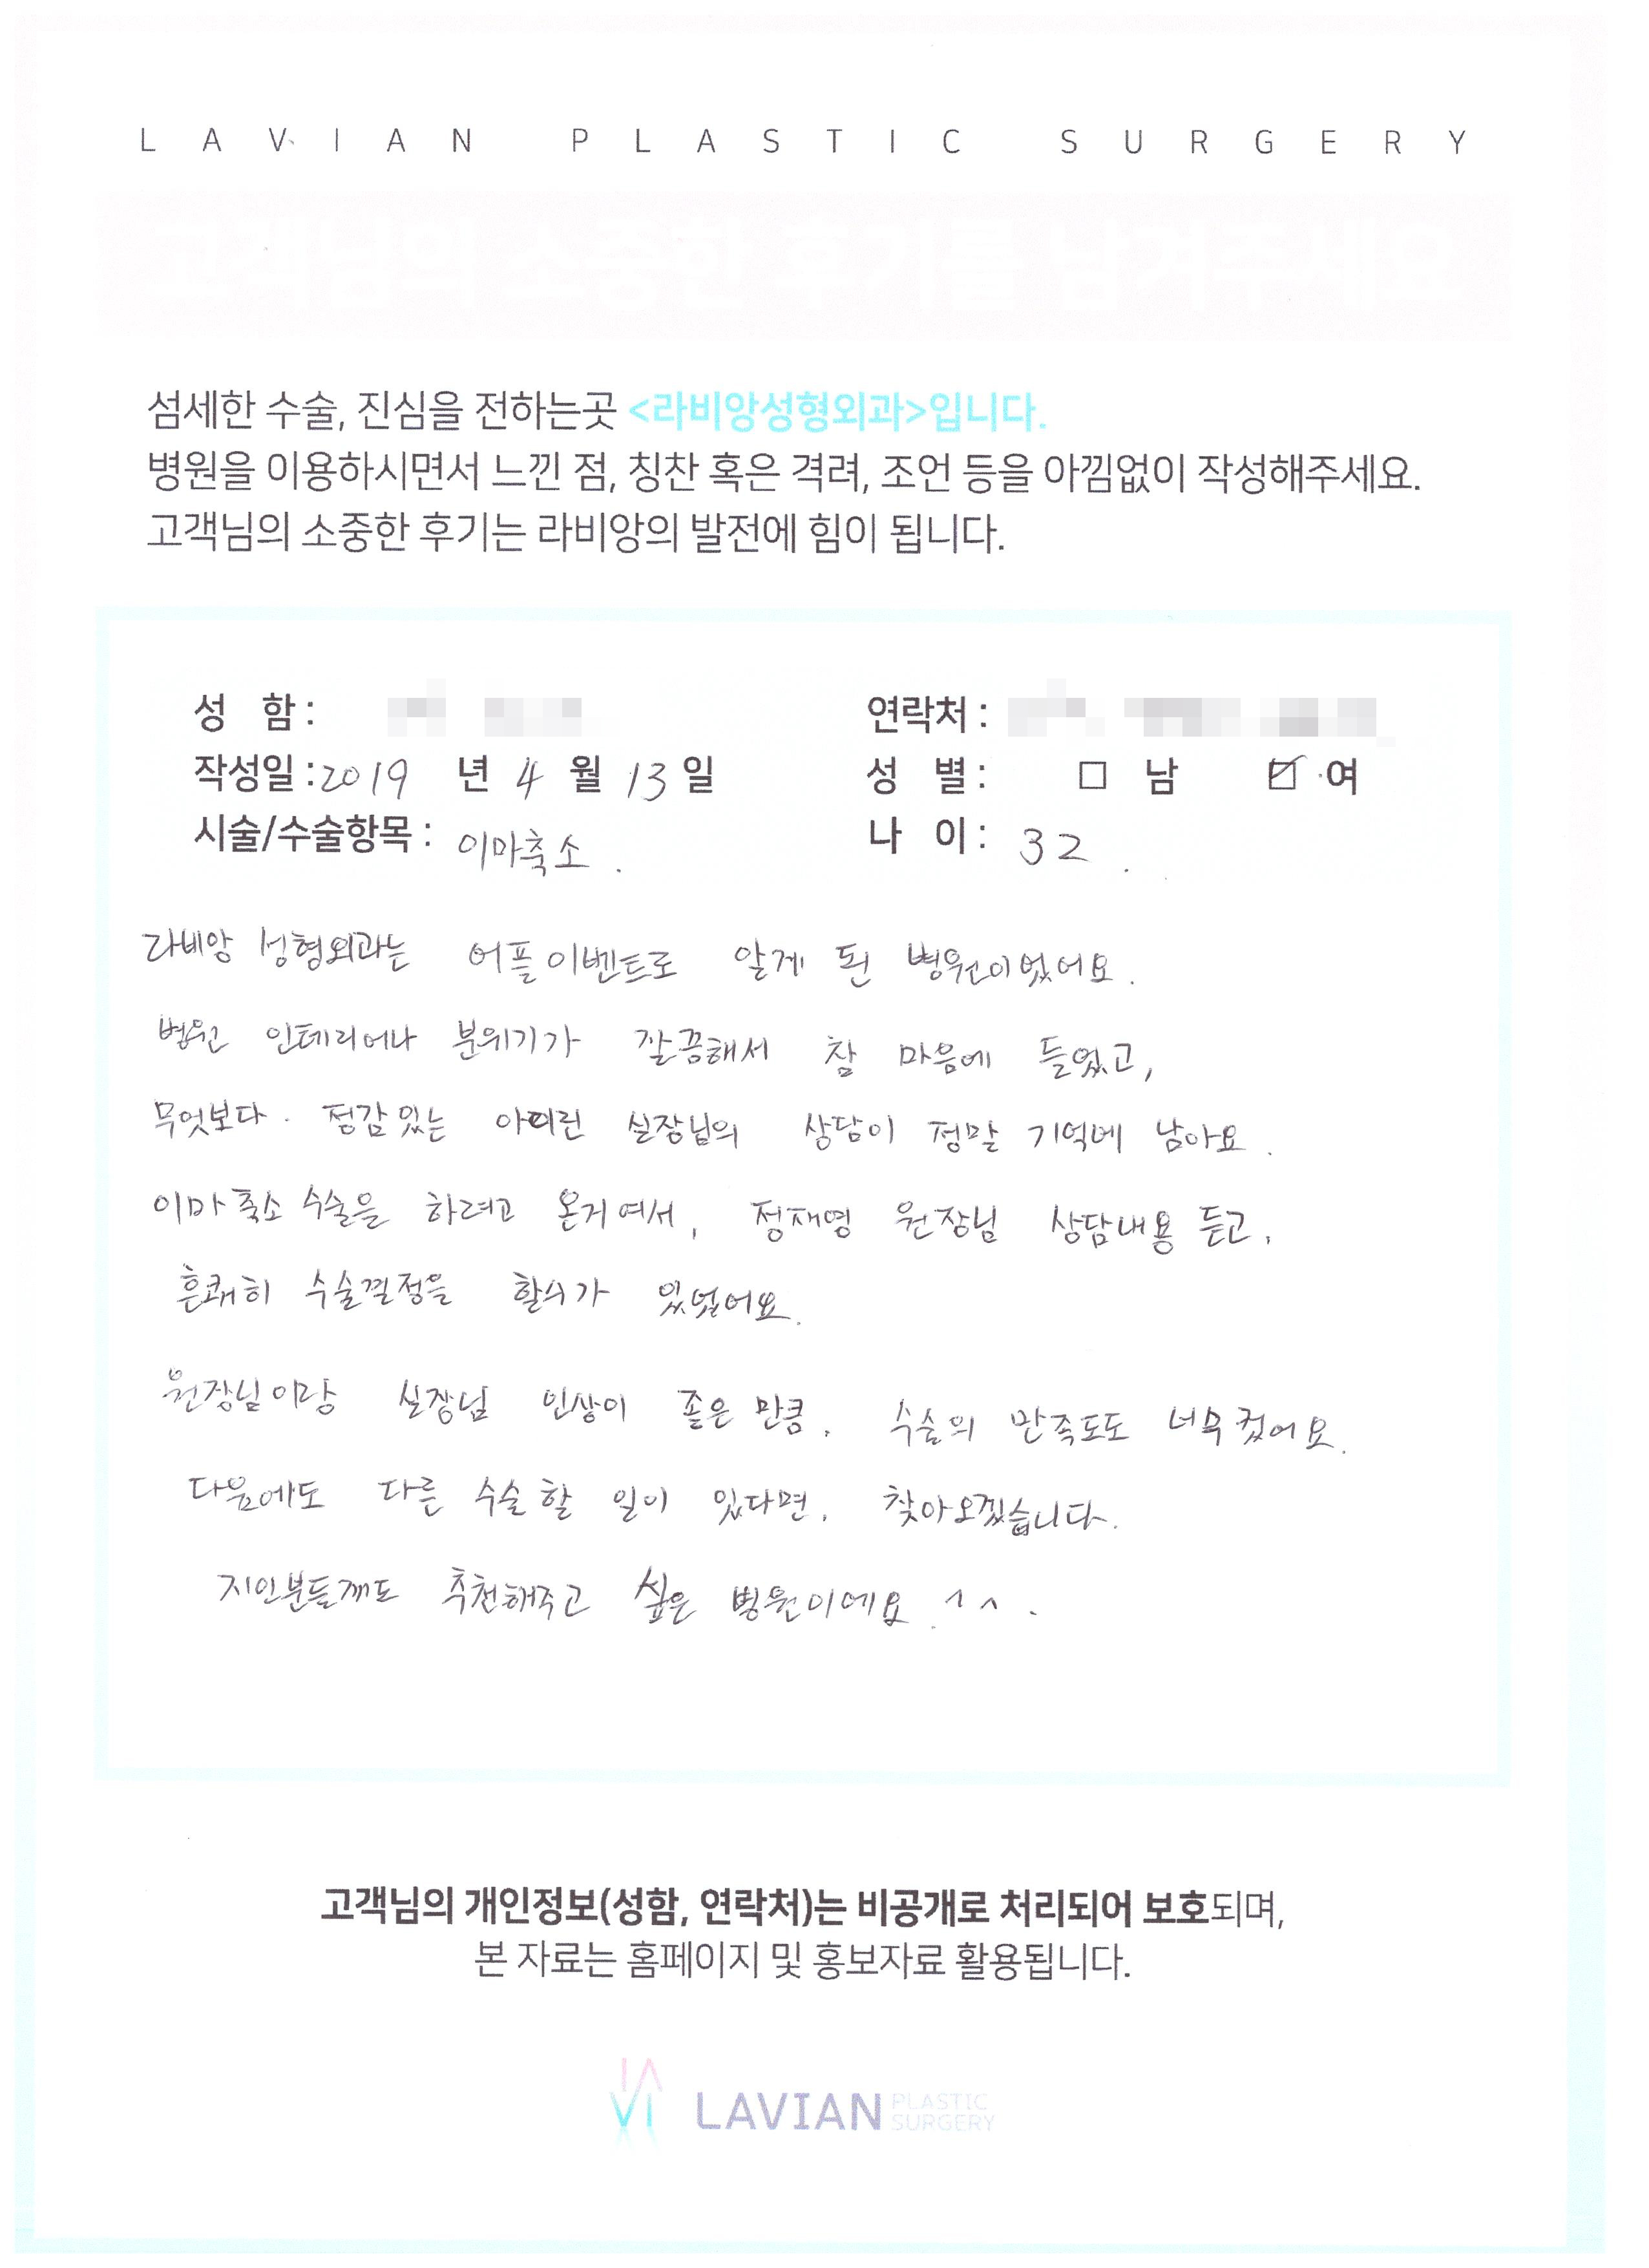 LAVIAN PLASTIC SURGERY
고객님의 소중한 후기를 남겨주세요
섬세한 수술, 진심을 전하는곳 <라비앙성형외과>입니다.
병원을 이용하시면서 느낀 점, 칭찬 혹은 격려, 조언 등을 아낌없이 작성해주세요.
고객님의 소중한 후기는 라비앙의 발전에 힘이 됩니다.
성 함 : 연락처 :
작성일 : 2019 년 4 월 13 일 성 별 : □ 남 ☑ 여
시술/수술항목 : 이마축소. 나 이 : 32.
라비앙 성형외과는 어플이벤트로 알게 된 병원이었어요.
병원 인테리어나 분위기가 깔끔해서 참 마음에 들었고,
무엇보다. 정감있는 실장님의 상담이 정말 기억에 남아요.
이마축소 수술을 하려고 온거여서, 정재영 원장님 상담내용 듣고,
흔쾌히 수술결정을 할수가 있었어요.
원장님이랑 실장님 인상이 좋은 만큼, 수술의 만족도도 너무 컸어요.
다음에도 다른 수술 할 일이 있다면, 찾아오겠습니다.
지인분들께도 추천해주고 싶은 병원이에요. ^^.
고객님의 개인정보(성함, 연락처)는 비공개로 처리되어 보호되며,
본 자료는 홈페이지 및 홍보자료 활용됩니다.
LAVIAN PLASTIC SURGERY